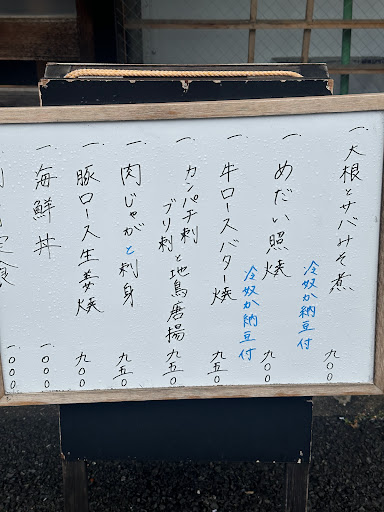 一、大根とサバみそ煮 九〇〇
冷奴か納豆付
一、めだい照焼 九〇〇
冷奴か納豆付
一、牛ロースバター焼 九五〇
一、カンパチ刺
ブリ刺と地鳥唐揚 九五〇
一、肉じゃがと刺身 九五〇
一、豚ロース生姜焼 九〇〇
一、海鮮丼 一、〇〇〇
一、〇〇〇